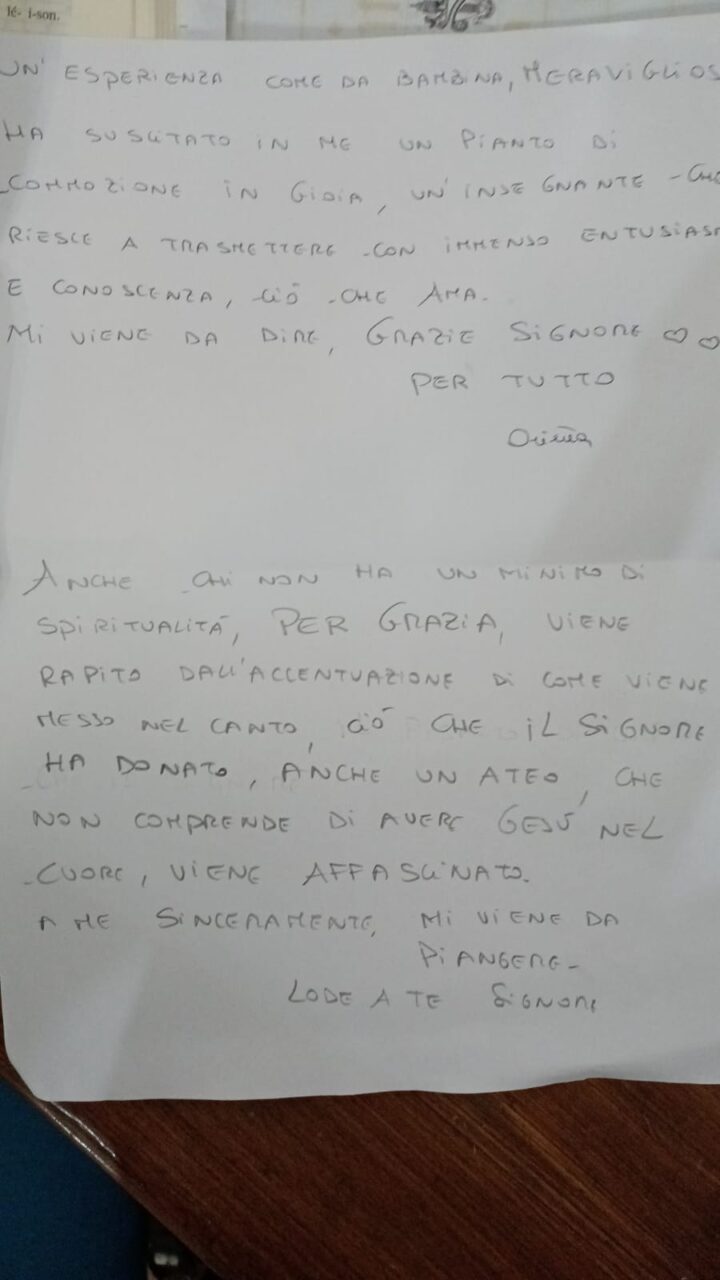 lé- i-son.
UN' ESPERIENZA COME DA BAMBINA, MERAVIGLIOS
HA SUSCITATO IN ME UN PIANTO DI
COMMOZIONE IN GIOIA, UN'INSEGNANTE - CHE
RIESCE A TRASMETTERE CON IMMENSO ENTUSIASM
E CONOSCENZA, CIÓ CHE AMA.
MI VIENE DA DIRE, GRAZIE SIGNORE ♡ ♡
PER TUTTO
ANCHE CHI NON HA UN MINIMO DI
SPIRITUALITÁ, PER GRAZIA, VIENE
RAPITO DALL'ACCENTUAZIONE DI COME VIENE
MESSO NEL CANTO, CIÓ CHE IL SIGNORE
HA DONATO, ANCHE UN ATEO, CHE
NON COMPRENDE DI AVERE GESÚ NEL
CUORE, VIENE AFFASCINATO.
A ME SINCERAMENTE, MI VIENE DA
PIANGERE-
LODE A TE SIGNORE